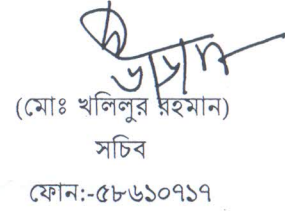 (মোঃ খলিলুর রহমান)
সচিব
ফোন:-৫৮৬১০৭১৭